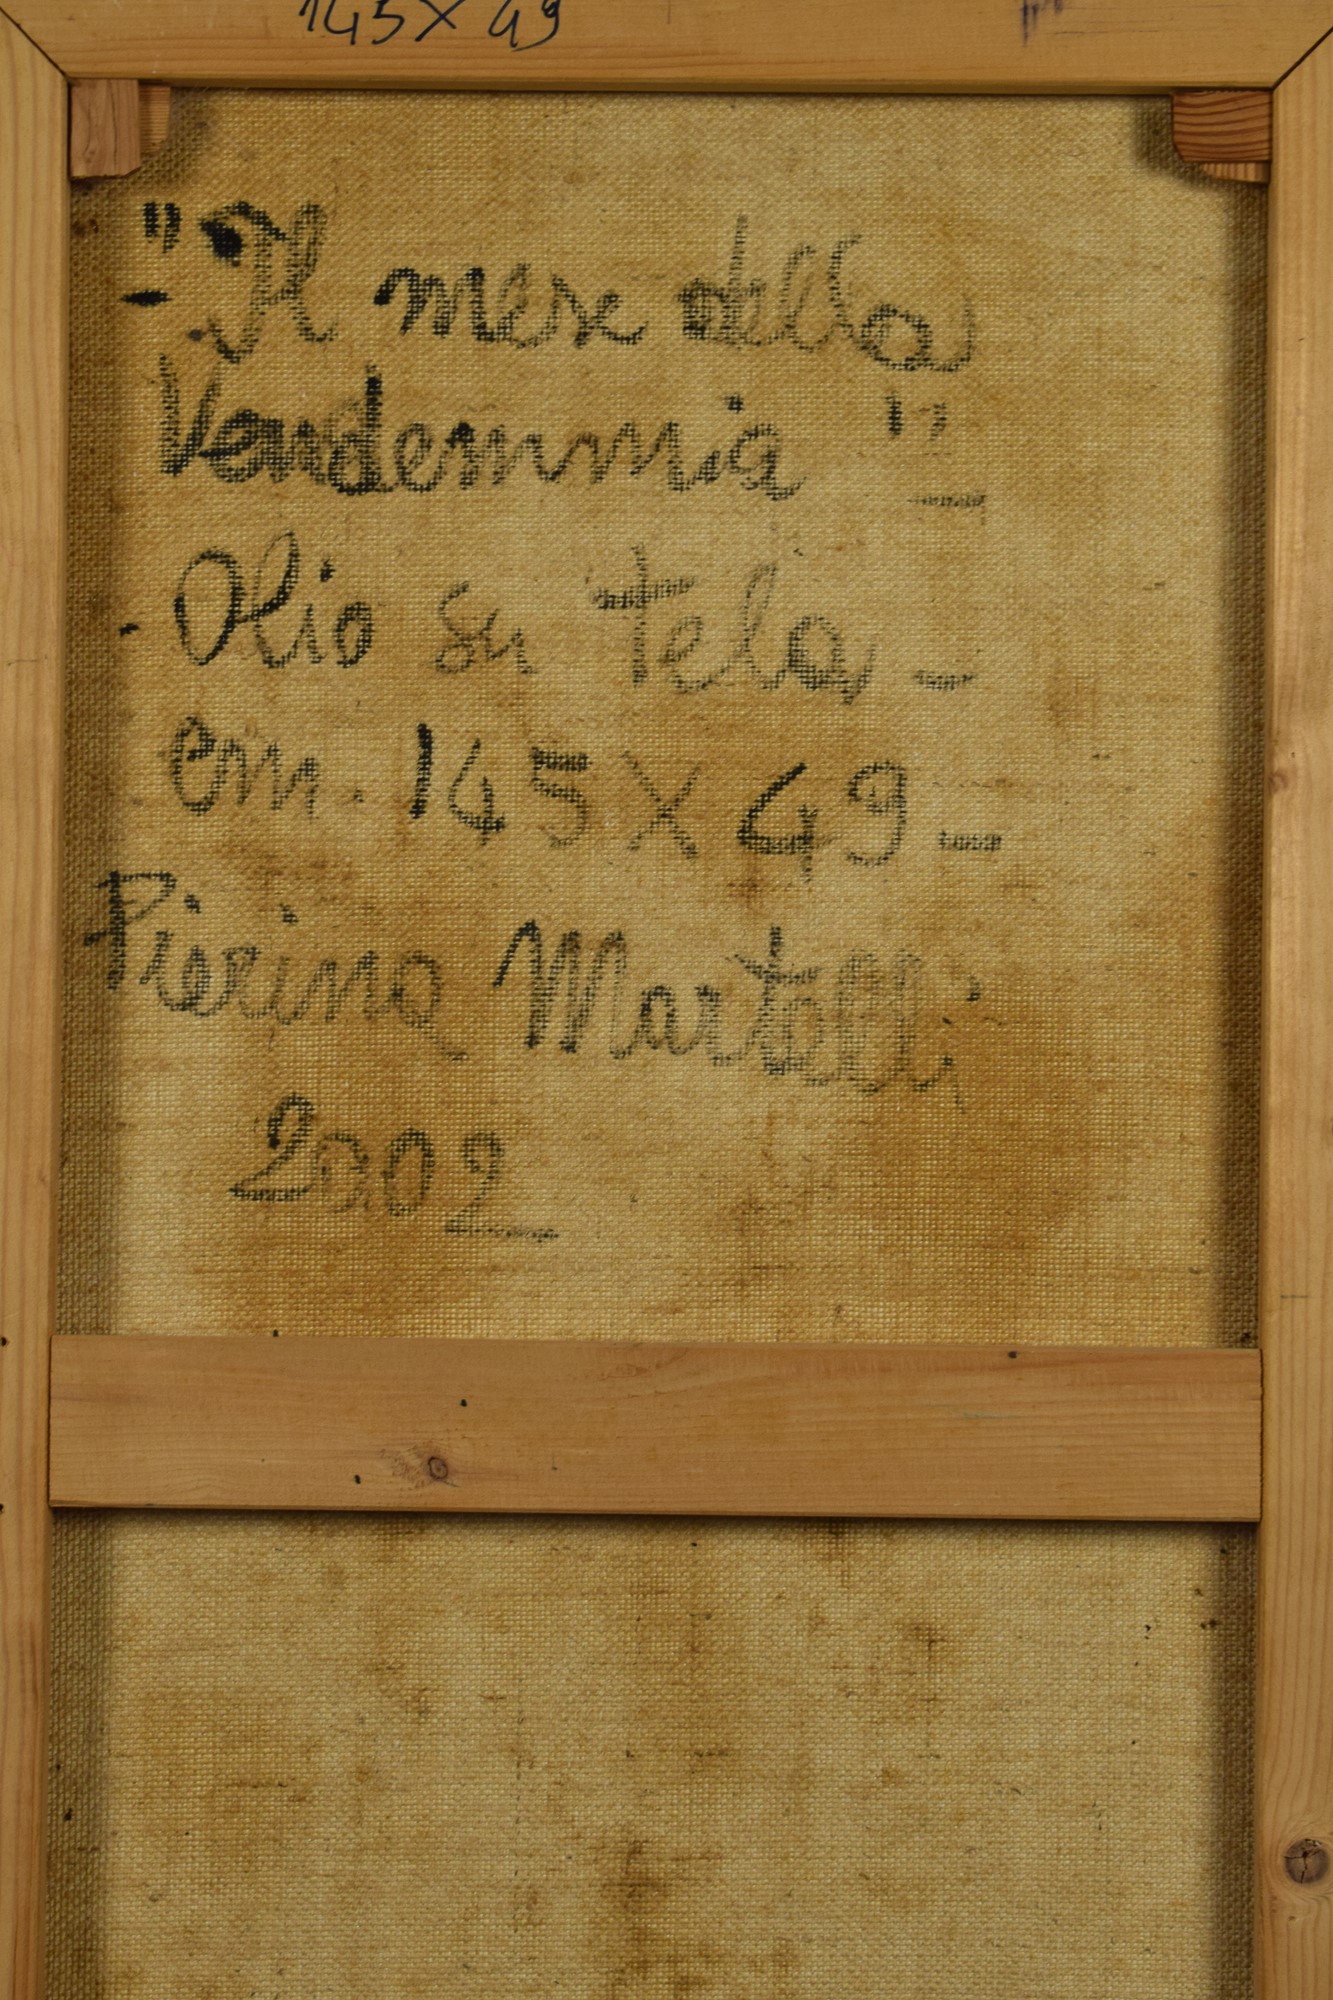 145 x 49
- "Il mese della
Vendemmia" -
- Olio su tela -
cm. 145 x 49 -
Pierino Martelli
2002